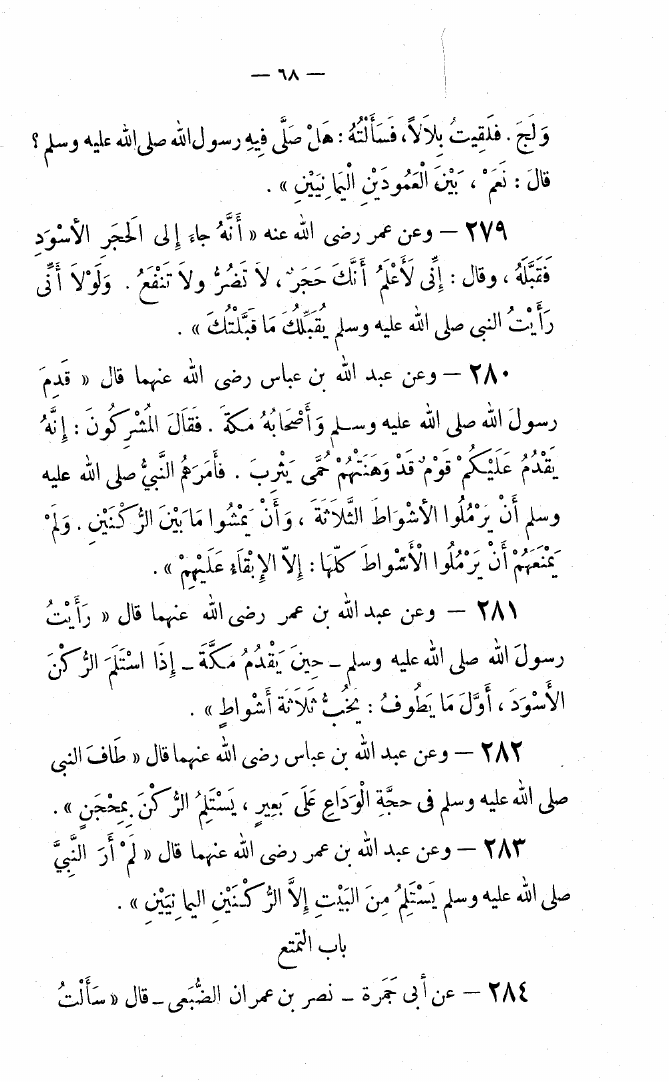 — ٦٨ —
وَلَجَ . فلَقِيتُ بِلاَلاً، فَسَأَلْتُهُ : هَلْ صَلَّى فِيهِ رسول الله صلى الله عليه وسلم ؟
قالَ : نَعَمْ ، بَيْنَ الْعَمُودَيْنِ الْيَمَانِيَيْنِ » .
٢٧٩ — وعن عمر رضى الله عنه « أَنَّهُ جاء إلى الحَجَرِ الأسْوَدِ
فَقَبَّلَهُ ، وقال : إِنِّى لَأَعْلَمُ أَنَّكَ حَجَرٌ ، لاَ تَضُرُّ ولاَ تَنْفَعُ . وَلَوْلاَ أَنِّى
رَأَيْتُ النبى صلى الله عليه وسلم يُقَبِّلُكَ مَا قَبَّلْتُكَ » .
٢٨٠ — وعن عبد الله بن عباس رضى الله عنهما قال « قَدِمَ
رسولَ الله صلى الله عليه وسلم وَأَصْحَابُهُ مَكةَ . فقَالَ المُشْرِكُونَ : إِنَّهُ
يَقْدُمُ عَلَيْكُمْ قَوْمٌ قَدْ وَهَنَتْهُمْ حُمَّى يَثْرِبَ . فأَمَرَهُمُ النَّبيُّ صلى الله عليه
وسلم أَنْ يَرْمُلُوا الأَشْوَاطَ الثَّلاَثَةَ ، وَأَنْ يَمْشُوا مَا بَيْنَ الرُّكْنَيْنِ . وَلَمْ
يَمْنَعَهُمْ أَنْ يَرْمُلُوا الْأَشْوَاطَ كلّهَا : إلاّ الإِبْقَاءُ عَلَيْهِمْ » .
٢٨١ — وعن عبد الله بن عمر رضى الله عنهما قال « رَأَيْتُ
رسولَ الله صلى الله عليه وسلم ـ حِينَ يَقْدُمُ مَكَّةَ ـ إِذَا اسْتَلَمَ الرُّكْنَ
الأَسْوَدَ ، أَوَّلَ مَا يَطُوفُ : يَخُبُّ ثَلاَثَةَ أَشْوَاطٍ » .
٢٨٢ — وعن عبد الله بن عباس رضى الله عنهما قال « طَافَ النبى
صلى الله عليه وسلم فى حجَّةِ الْوَدَاعِ عَلَى بَعِيرٍ ، يَسْتَلِمُ الرُّكْنَ بِمِحْجَنٍ » .
٢٨٣ — وعن عبد الله بن عمر رضى الله عنهما قال « لَمْ أَرَ النَّبِيَّ
صلى الله عليه وسلم يَسْتَلِمُ مِنَ البَيْتِ إلاَّ الرُّكْنَيْنِ اليمانِيَيْنِ » .
باب التمتع
٢٨٤ — عن أبى جَمَرة ـ نصر بن عمران الضُّبَعى ـ قال « سَأَلْتُ